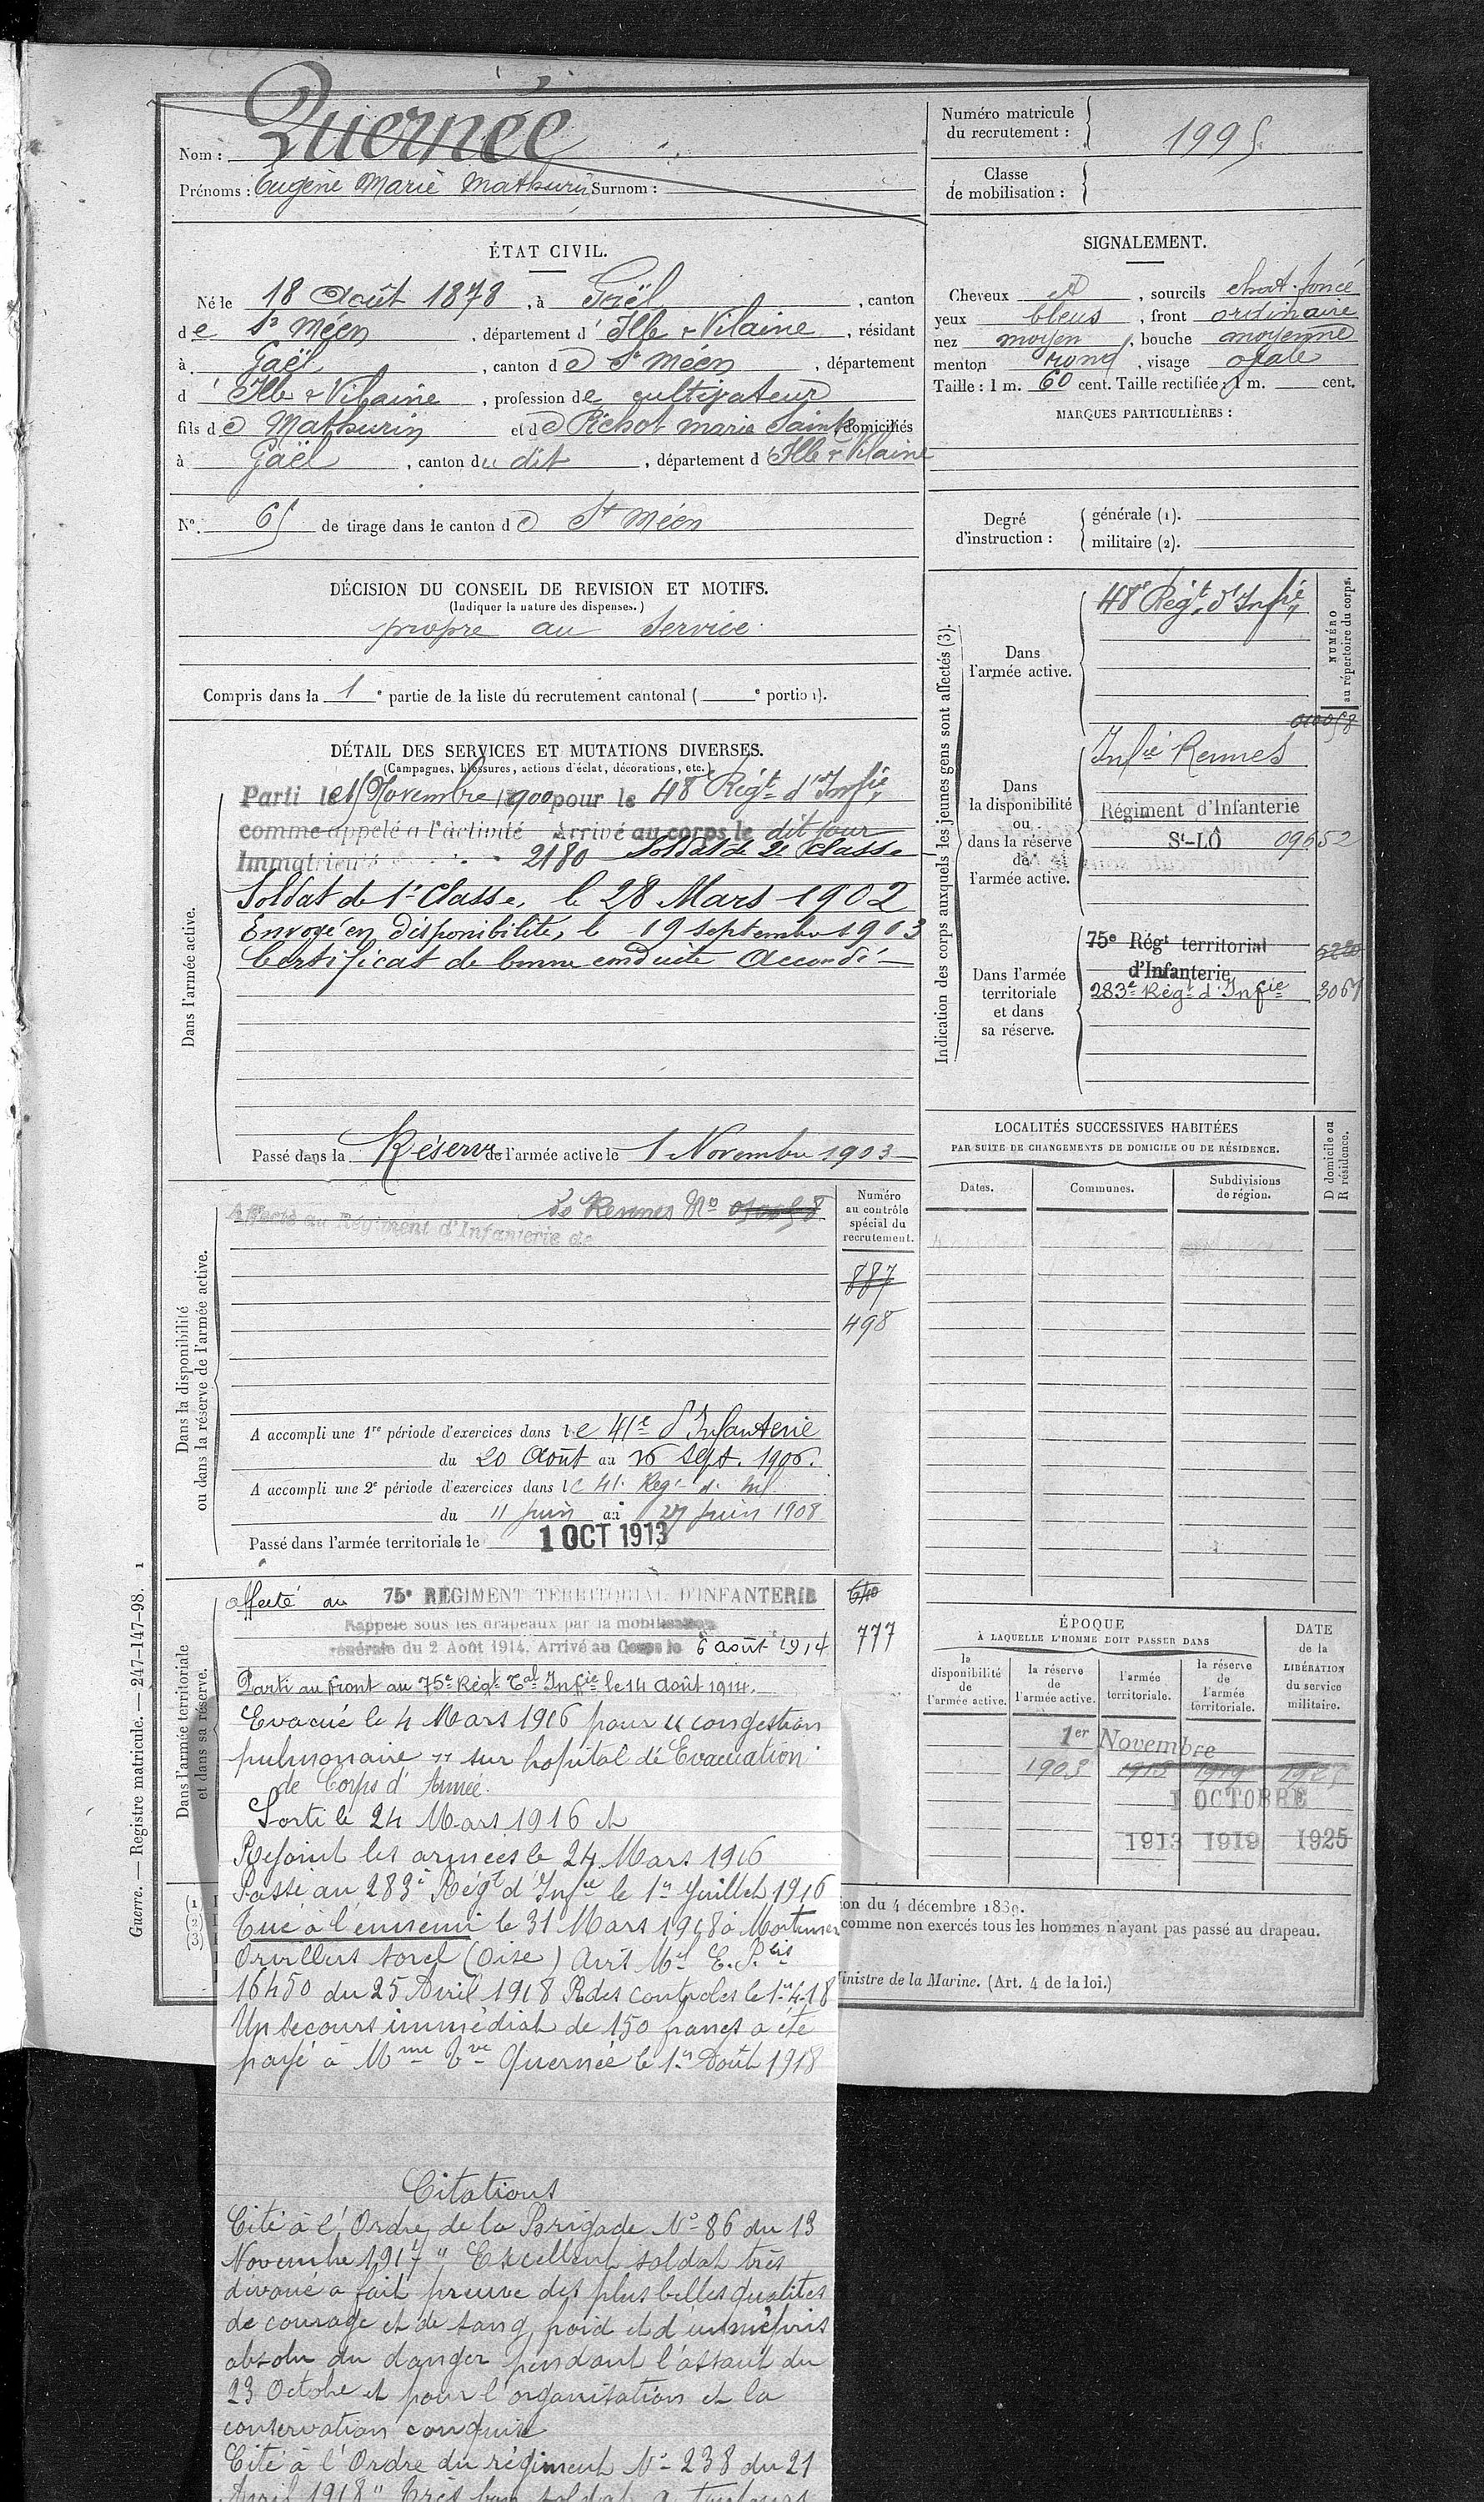 Nom : Quernée
Prénoms : Eugène Marie Mathurin Surnom :
Numéro matricule
du recrutement : 1995
Classe
de mobilisation :
ÉTAT CIVIL.
Né le 18 Août 1878, à Gaël, canton
de St Méen, département d' Ille & Vilaine, résidant
à Gaël, canton de St Méen, département
d' Ille & Vilaine, profession de cultivateur
fils de Mathurin et de Richot marie Sainte domiciliés
à Gaël, canton du dit, département d' Ille & Vilaine
N° 65 de tirage dans le canton de St Méen
SIGNALEMENT.
Cheveux et, sourcils chat. foncé
yeux bleus, front ordinaire
nez moyen, bouche moyenne
menton rond, visage ovale
Taille : 1 m. 60 cent. Taille rectifiée : 1 m. cent.
MARQUES PARTICULIÈRES :
Degré
d'instruction :
générale (1).
militaire (2).
DÉCISION DU CONSEIL DE REVISION ET MOTIFS.
(Indiquer la nature des dispenses.)
propre au Service
Compris dans la 1e partie de la liste du recrutement cantonal ( e portion).
DÉTAIL DES SERVICES ET MUTATIONS DIVERSES.
(Campagnes, blessures, actions d'éclat, décorations, etc.)
Dans l'armée active.
Parti le Novembre 1900 pour le 48e Régt d'Infie
comme appelé à l'activité Arrivé au corps le dit jour
Immatriculé 2180 Soldat de 2e Classe
Soldat de 1e Classe, le 28 Mars 1902
Envoyé en disponibilité, le 19 septembre 1903
Certificat de bonne conduite Accordé
Passé dans la Réserve de l'armée active le 1 Novembre 1903
Indication des corps auxquels les jeunes gens sont affectés (3).
NUMÉRO
au répertoire du corps.
Dans
l'armée active.
48e Régt d'Infie
Dans
la disponibilité
ou
dans la réserve
de
l'armée active.
Infie Rennes
Régiment d'Infanterie
St-LÔ 09652
Dans l'armée
territoriale
et dans
sa réserve.
75e Régt territorial
d'Infanterie
283e Régt d'Infie 3061
LOCALITÉS SUCCESSIVES HABITÉES
PAR SUITE DE CHANGEMENTS DE DOMICILE OU DE RÉSIDENCE.
D domicile ou
R résidence.
Dates.
Communes.
Subdivisions
de région.
Dans la disponibilité
ou dans la réserve de l'armée active.
Affecté au Régiment d'Infanterie de
de Rennes No
Numéro
au contrôle
spécial du
recrutement.
887
498
A accompli une 1re période d'exercices dans le 41e d'Infanterie
du 20 Août au 16 Sept. 1906.
A accompli une 2e période d'exercices dans le 41e Regt d' Inf.
du 11 juin au 27 juin 1908
Passé dans l'armée territoriale le 1 OCT 1913
Dans l'armée territoriale
et dans sa réserve.
affecté au 75e RÉGIMENT TERRITORIAL D'INFANTERIE 640
Rappelé sous les drapeaux par la mobilisation
générale du 2 Août 1914. Arrivé au Corps le 6 août 1914 777
Parti au front au 75e Régt Tal Infie le 14 août 1914.
Evacué le 4 Mars 1916 pour "congestion
pulmonaire" sur hopital de Evacuation
de Corps d'Armée.
Sorti le 24 Mars 1916 et
Rejoint les armées le 24 Mars 1916
Passé au 283e Régt d'Infie le 1er Juillet 1916
Tué à l'ennemi le 31 Mars 1918 à Mortemer
Orvillers Sorel (Oise) Avis Mel E. P.
16450 du 25 Avril 1918 R des controles le 1-4-18
Un secours immédiat de 150 francs a été
payé à Mme Vve Quernée le 1er Août 1918
Citations
Cité à l'Ordre de la Brigade No 86 du 13
Novembre 1917 " Excellent soldat très
dévoué a fait preuve des plus belles qualités
de courage et de sang froid et d'un mépris
absolu du danger pendant l'assaut du
23 Octobre et pour l'organisation et la
conservation conquise
Cité à l'Ordre du régiment No 238 du 21
Avril 1918 " Très bon soldat a toujours
ÉPOQUE
À LAQUELLE L'HOMME DOIT PASSER DANS
DATE
de la
LIBÉRATION
du service
militaire.
la
disponibilité
de
l'armée active.
la réserve
de
l'armée active.
l'armée
territoriale.
la réserve
de
l'armée
territoriale.
1er Novembre
1903
1 OCTOBRE
1913 1919 1925
on du 4 décembre 1889.
comme non exercés tous les hommes n'ayant pas passé au drapeau.
inistre de la Marine. (Art. 4 de la loi.)
Guerre. — Registre matricule. — 247-147-98. 1
(1)
(2)
(3)